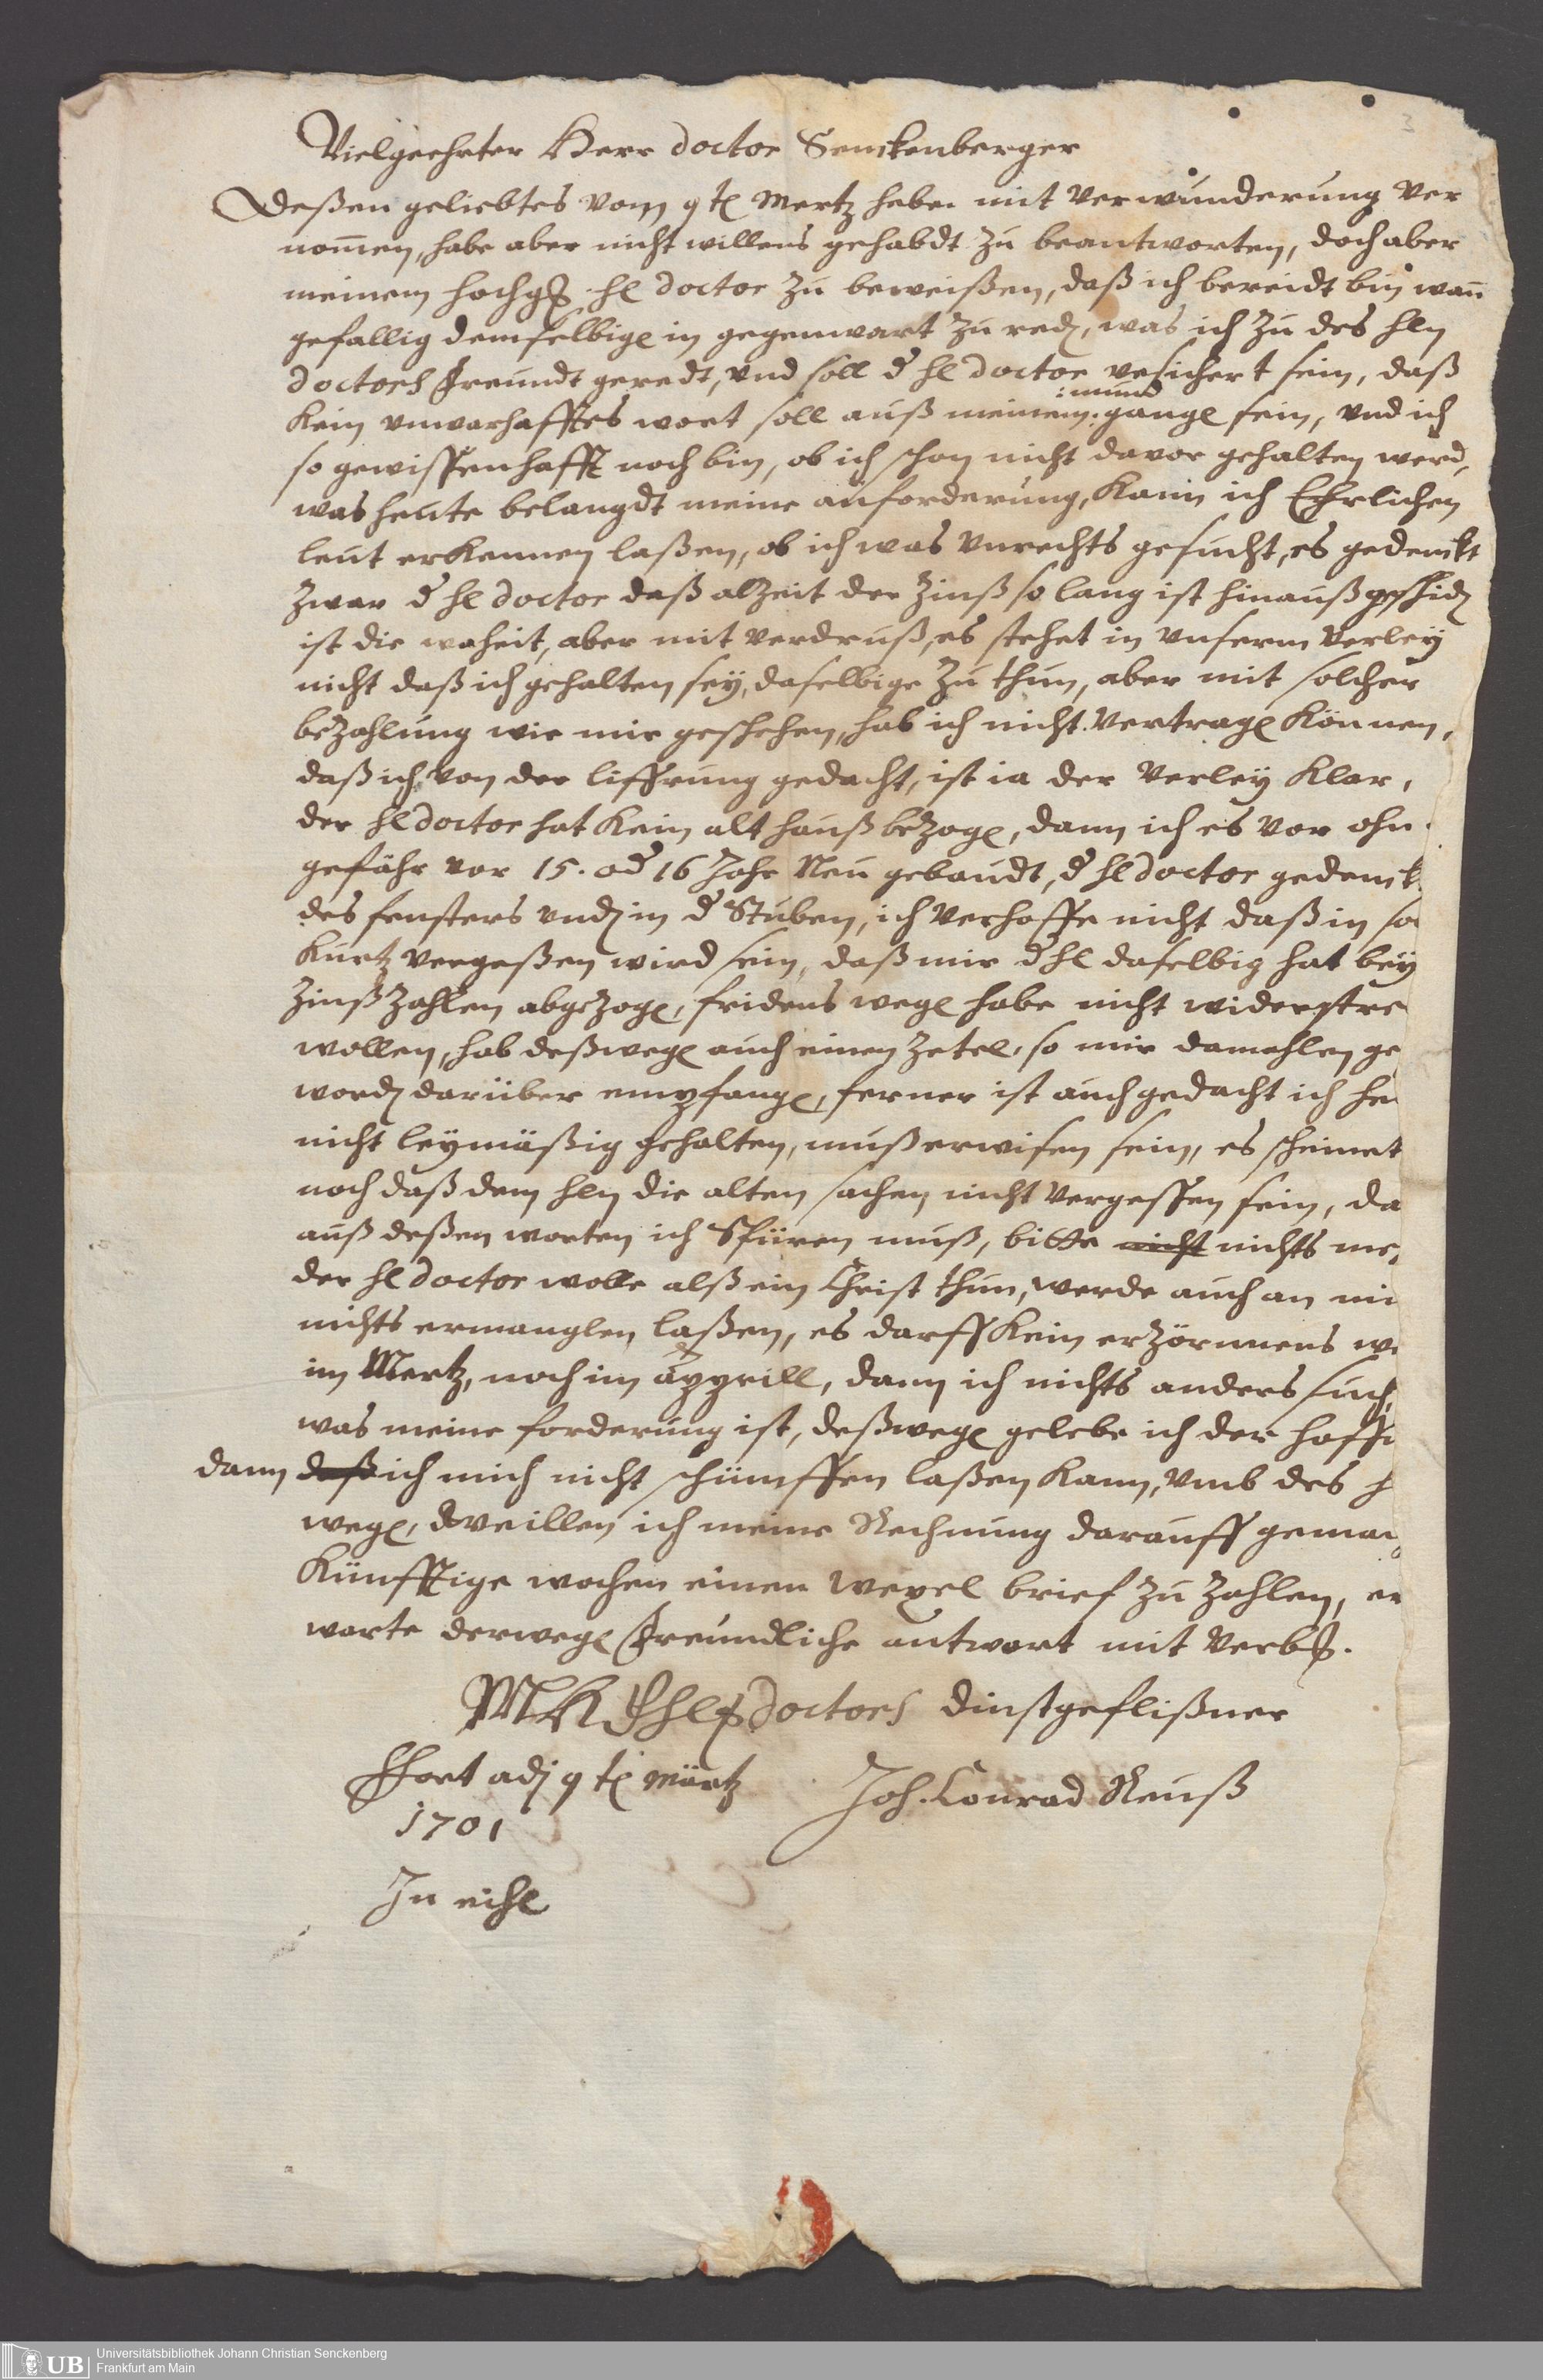 3
Vielgeehrter Herr doctor Senckenberger
Deßen geliebtes vom 9 te Mertz habe mit verwunderung ver
nom̄en, habe aber nicht willens gehabdt zu beantworten, doch aber
meinem hochg. hl doctor zu beweißen, daß ich bereidt bin wan̄
gefallig demselbige in gegenwart zu red, was ich zu des hln
doctors freundt geredt, und soll d hl doctor vesichert sein, daß
: mund
kein unwarhafftes wort soll auß meinem: gange sein, und ich
so gewissenhafft noch bin, ob ich schon nicht davor gehalten werd,
was heute belangdt meine anforderung, kann ich Ehrlichen
leut erkennen laßen, ob ich was unrechts gesucht, es gedenckt
zwar d hl doctor daß alzeit der Zinß so lang ist hinauß
ist die waheit, aber mit verdruß, es stehet in unserm verleÿ
nicht daß ich gehalten seÿ, daselbige zu thun, aber mit solcher
bezahlung wie mir geschehen, hab ich nicht vertrage können,
daß ich von der liffrung gedacht, ist ia der verleÿ klar,
der hl doctor hat kein alt hauß bezoge, dann ich es vor ohn
gefähr vor 15. od 16 Jahr Neu gebaudt, d hl doctor gedenck
des fensters und in d Stuben, ich verhoffe nicht daß in so
kurtz vergeßen wird sein, daß mir d hl daselbig hat beÿ
Zinß zahlen abgezoge, fridens wege habe nicht widerstre
wollen, hab deßwege auch einen Zetel, so mir damahlen ge
word darüber empfange, ferner ist auch gedacht ich he
nicht leÿmäßig gehalten, muß erwisen sein, es scheinet
noch daß dem hln die alten sachen nicht vergessen sein, da
auß deßen worten ich Spüren muß, bitte nicht nichts me
der hl doctor wolle alß ein Christ thun, werde auch an mi
nichts ermanglen laßen, es darff kein erzörnnens we
im Mertz, noch im apprill, dann ich nichts anders such
was meine forderung ist, deßwege gelebe ich der hoffn
dann daß ich mich nicht schimpffen laßen kann, umb des h
wege, dweillen ich meine Rechnung darauff gemac
künfftige wochen einen wexel brief zu zahlen, er
warte derwege freundliche antwort mit verbl.
doctors dinstgeflißner
ffort adj 9 te märtz Joh. Conrad Reuß
1701
In eihl
UB Universitätsbibliothek Johann Christian Senckenberg
Frankfurt am Main